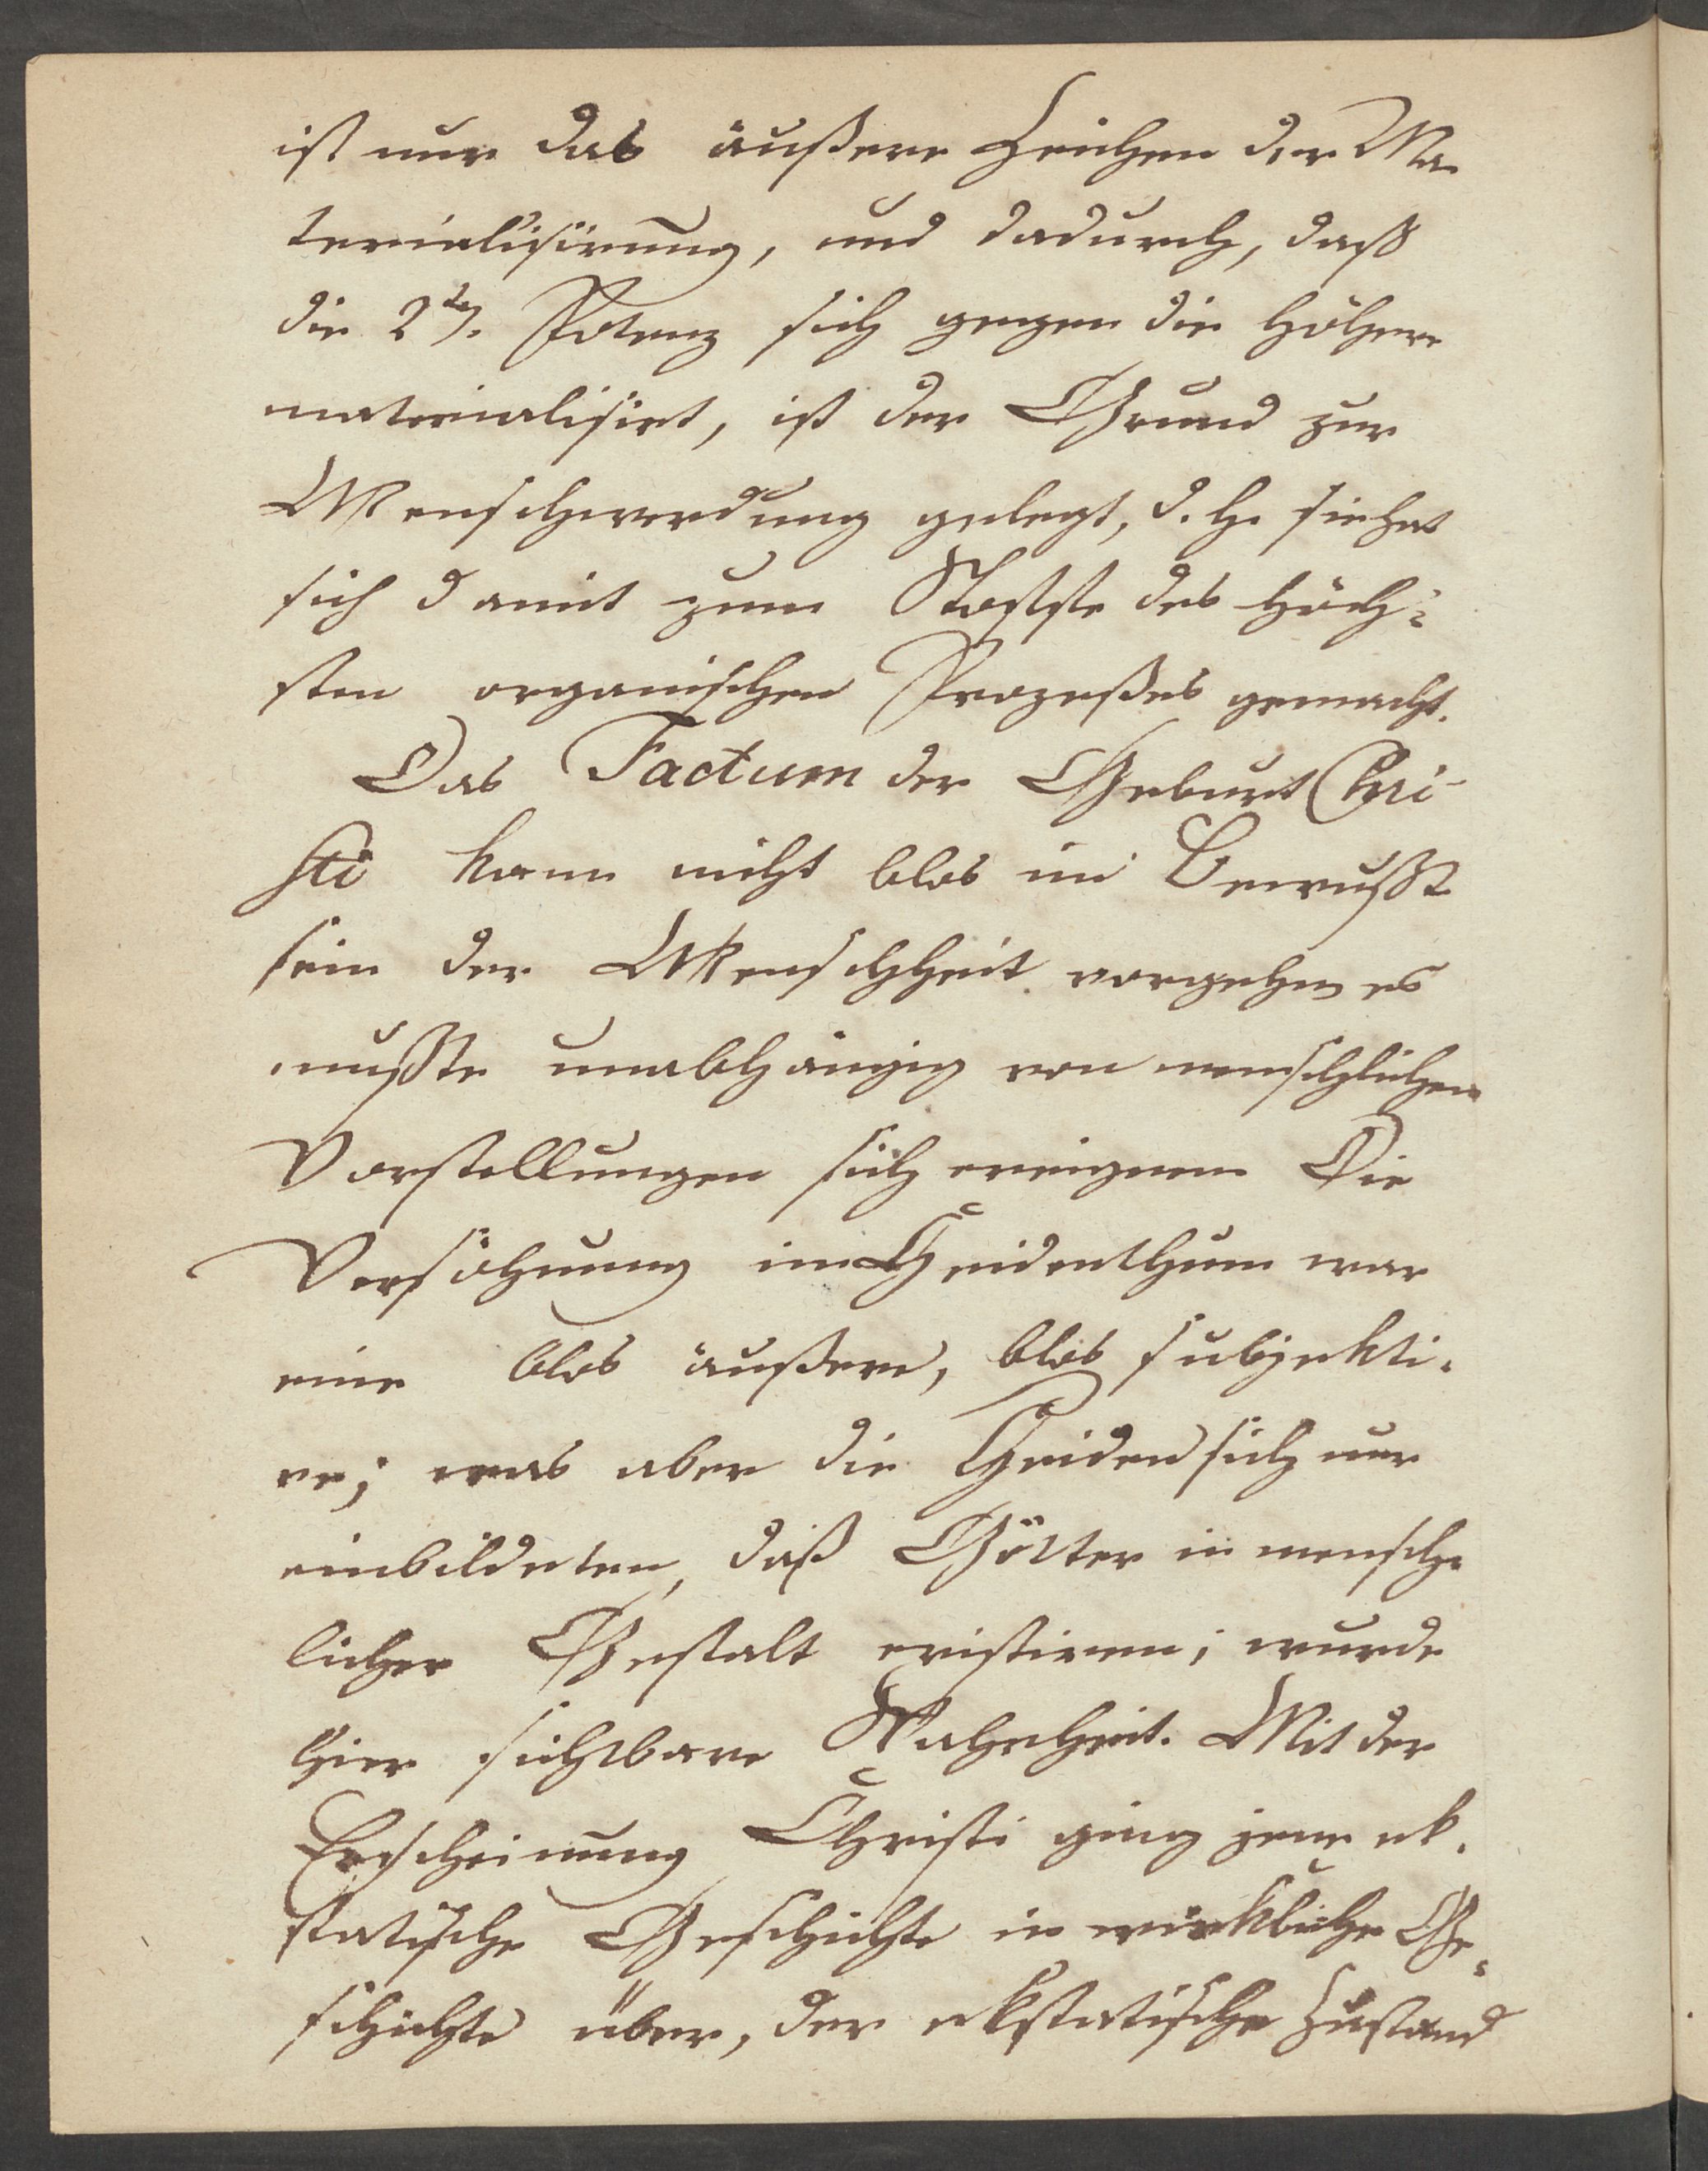 ist nur das äußere Zeichen der Ma-
terialisirung, und dadurch, daß
die 2te. Potenz sich gegen die höhere
materialisirt, ist der Grund zur
Menschwerdung gelegt, d. h. sie hat
sich damit zum Stoffe des höch-
sten organischen Prozeßes gemacht.
Das Factum der Geburt Chri-
sti kann nicht blos im Bewußt
sein der Menschheit vorgehen es
mußte unabhängig von menschlichen
Vorstellungen sich ereignen Die
Versöhnung im Heidenthum war
eine blos äußere, blos subjekti-
ve; was aber die Heiden sich nur
einbildeten, daß Götter in mensch-
licher Gestalt existiren; wurde
hier sichtbare Wahrheit. Mit der
Erscheinung Christi ging jene ek-
statische Geschichte in wirkliche Ge-
schichte über, der ekstatische Zustand